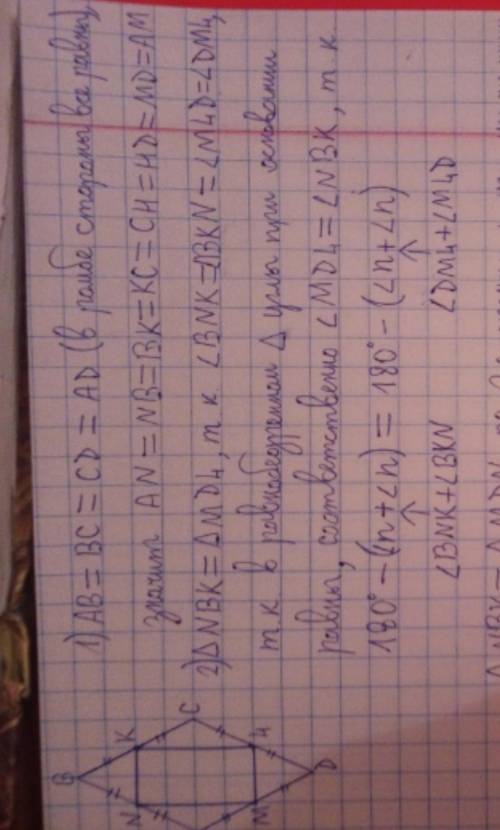 1) AB=BC=CD=AD (в ромбе стороны все равны)
значит AN=NB=BK=KC=CH=HD=MD=AM
2) ΔNBK=ΔMD4, т.к ∠BNK=∠BKN=∠M4D=∠DM4,
т.к. в равнобедренном Δ углы при основании
равны, соответственно ∠MD4=∠NBK, т.к.
180°-(∠n+∠n)=180°-(∠n+∠n)
↑ ↑
∠BNK+∠BKN ∠DM4+∠M4D
B
N K
C
M 4
D